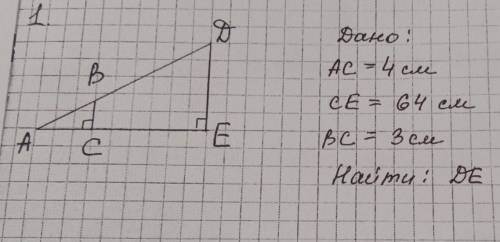 1.
D
B
A
C
E
Дано:
AC = 4 см
CE = 64 см
BC = 3 см
Найти: DE